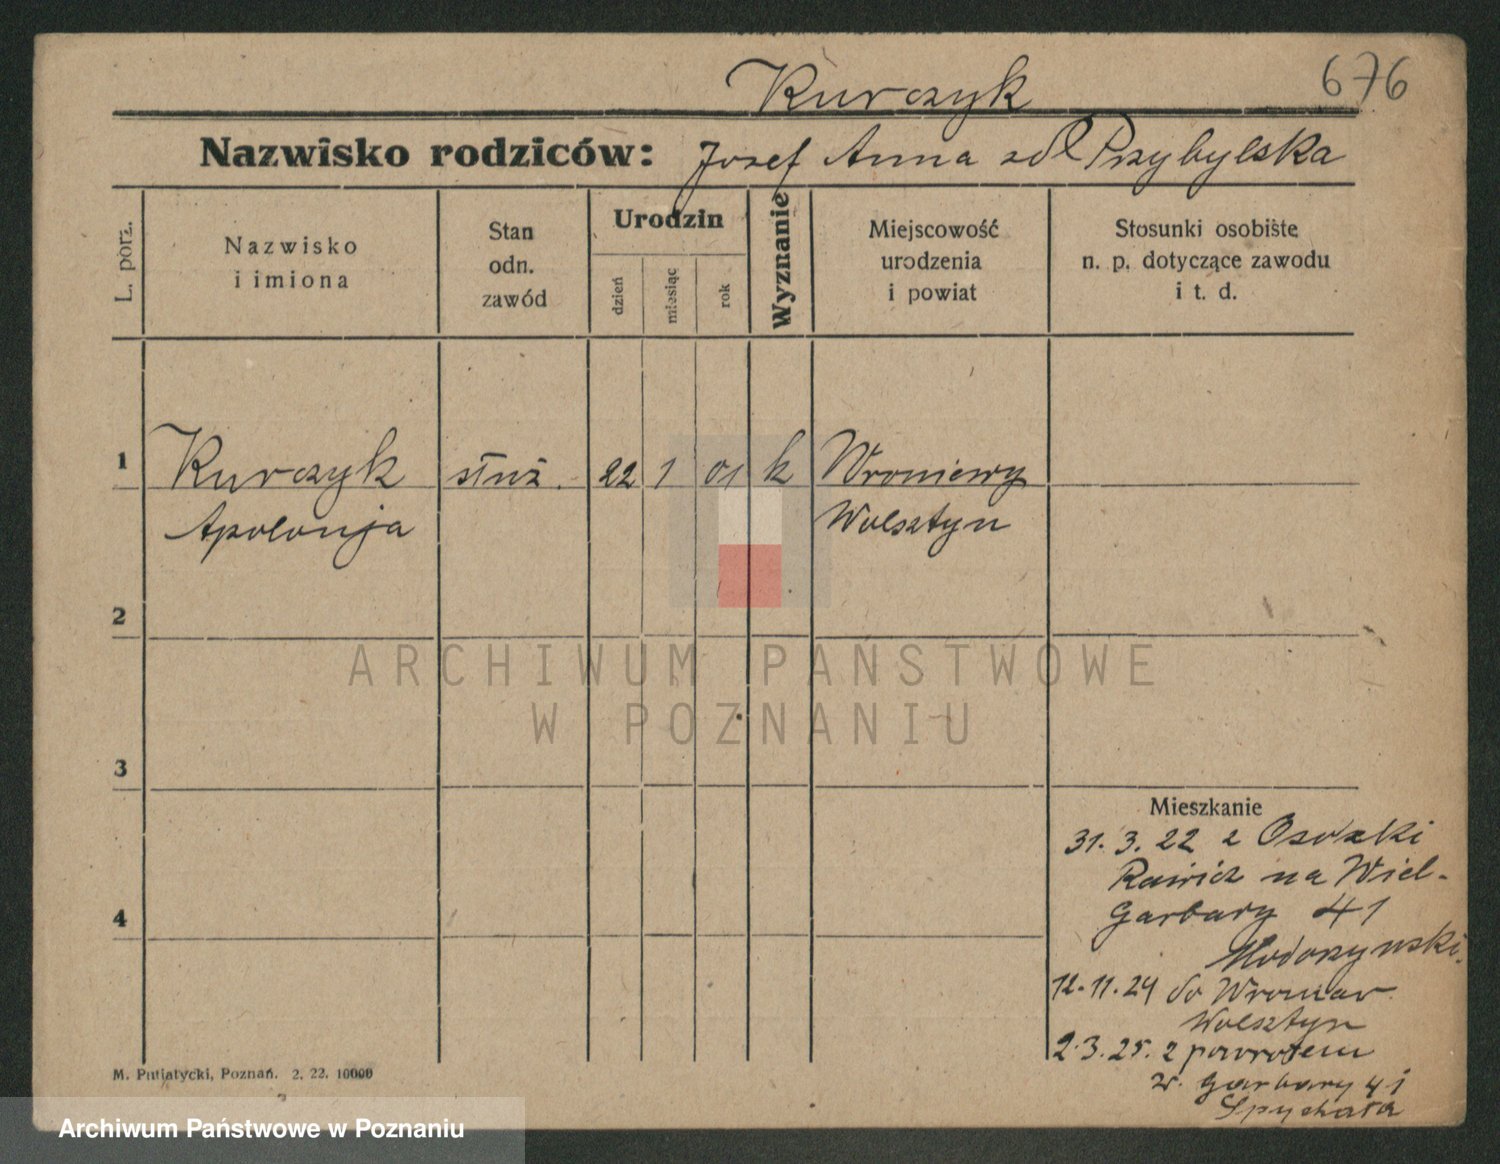 Kurczyk 676
Nazwisko rodziców: Josef Anna zd Przybylska
L. porz.
Nazwisko
i imiona
Stan
odn.
zawód
Urodzin
dzień
miesiąc
rok
Wyznanie
Miejscowość
urodzenia
i powiat
Stosunki osobiste
n. p. dotyczące zawodu
i t. d.
1 Kurczyk służ. 22 1 01 k Wroniewy
Apolonja Wolsztyn
2
3
4
Mieszkanie
31. 3. 22 z
Rawicz na Wiel-
Garbary 41
12. 11. 24 do
Wolsztyn
2. 3. 25. z powrotem
w. Garbary 41
Spychała
M. Putiatycki, Poznań. 2. 22. 10000
ARCHIWUM PAŃSTWOWE
W POZNANIU
Archiwum Państwowe w Poznaniu